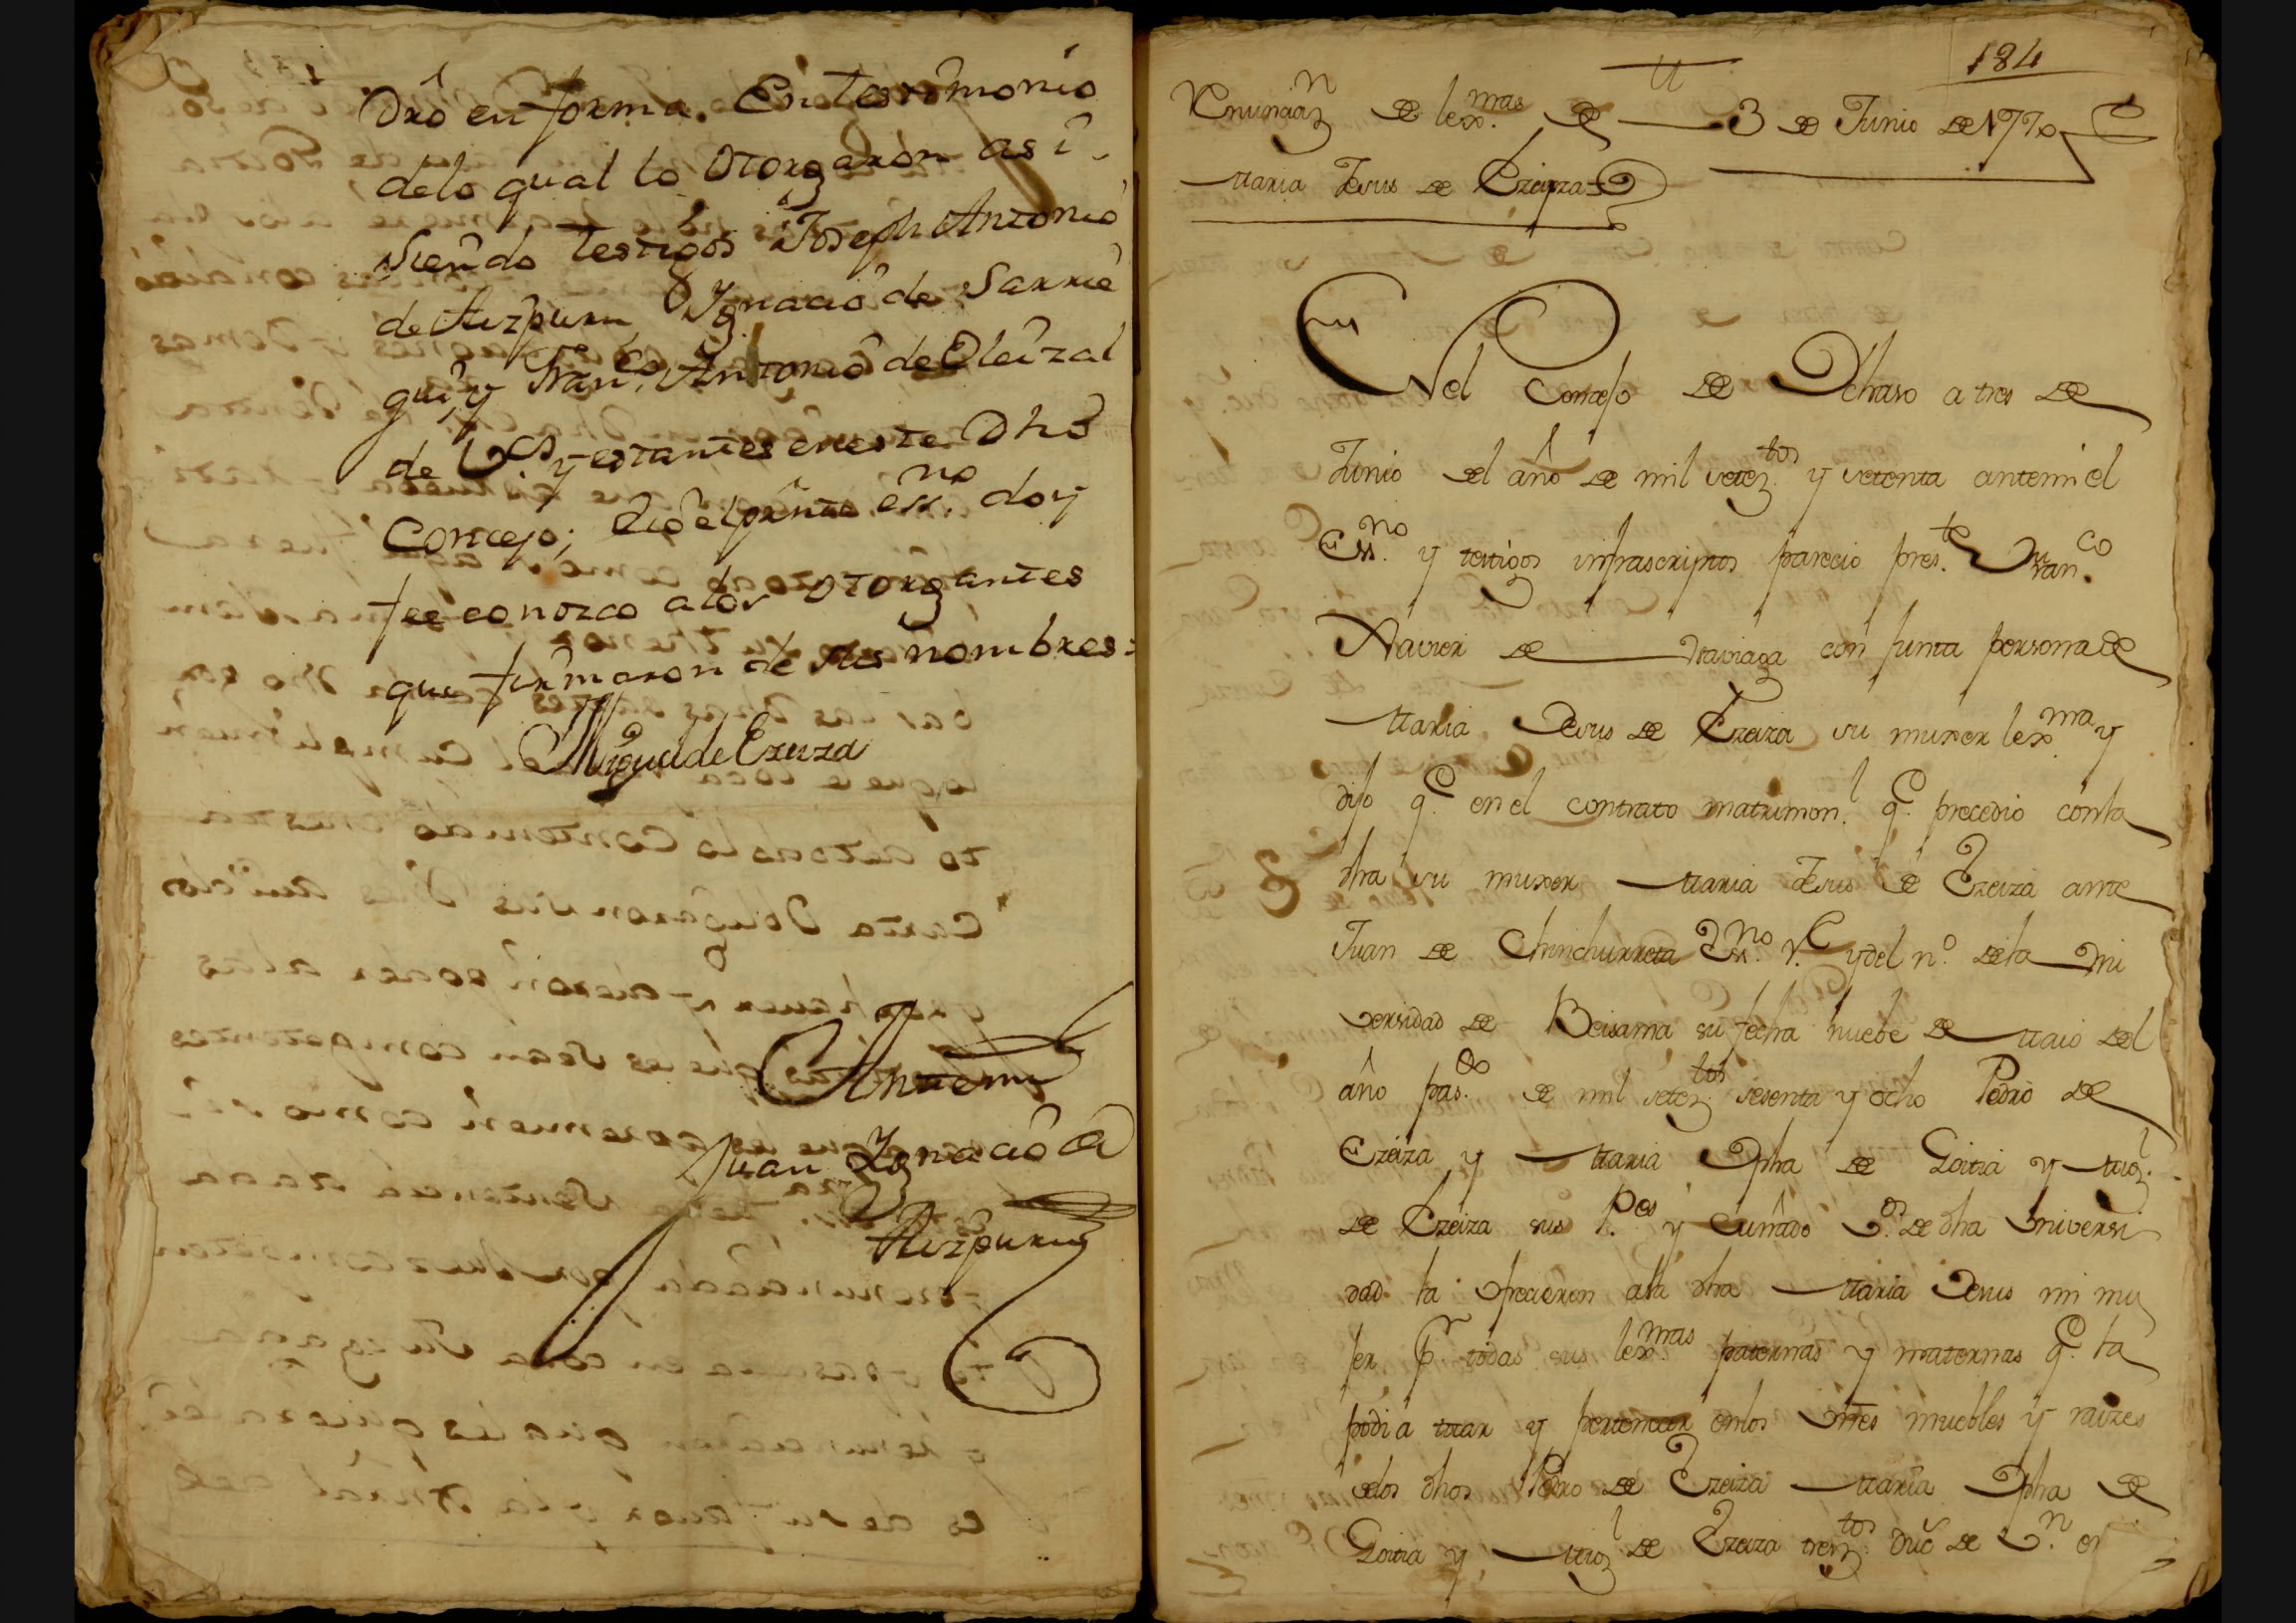 Dro en forma. En testimonio
delo qual lo otorgaron asi
siendo testigos Joseph Antonio
de Aizpuru, Ygnacio de Sarrie
gui, y Fran.co Antonio de Oleizal
de V.os y estantes eneste dho
Concejo; e yo el pnte ess.no doy
fee conozco alos otorgantes
que firmaron de sus nombres =
Miguel de Ezeiza
Antemi
Juan Ygnacio de
Aizpuru
184
Renunciaz.n de lex.mas de
3 de Junio de 1770
Maria Jesus de Ezeiza
En el Concejo de a tres de
Junio del año de mil setez.tos y setenta antemi el
Ess.no y testigos infrascriptos parecio pres.te Fran.co
Xavier de con junta persona de
Maria Jesus de Ezeiza su muxer lex.ma y
dijo q.e en el contrato matrimon.l q.e precedio con la
dha su muxer Maria Jesus de Ezeiza ante
Juan de Chinchurreta Ess.no R.l y del n.o dela Uni
versidad de Beisama su fecha nuebe de Maio del
año pas.do de mil setez.tos sesenta y ocho Pedro de
Ezeiza y Maria Jpha de Goitia y Mig.l
de Ezeiza sus P.es y Cuñado V.os de dha Universi
dad la ofrecieron ala dha Maria Jesus mi mu
jer p.r todas sus lex.mas paternas y maternas q.e la
podia tocar y pertenecer enlos vnes muebles y raizes
delos dhos Pedro de Ezeiza Maria Jpha de
Goitia y Mig.l de Ezeiza trez.tos duc.s de V.n en